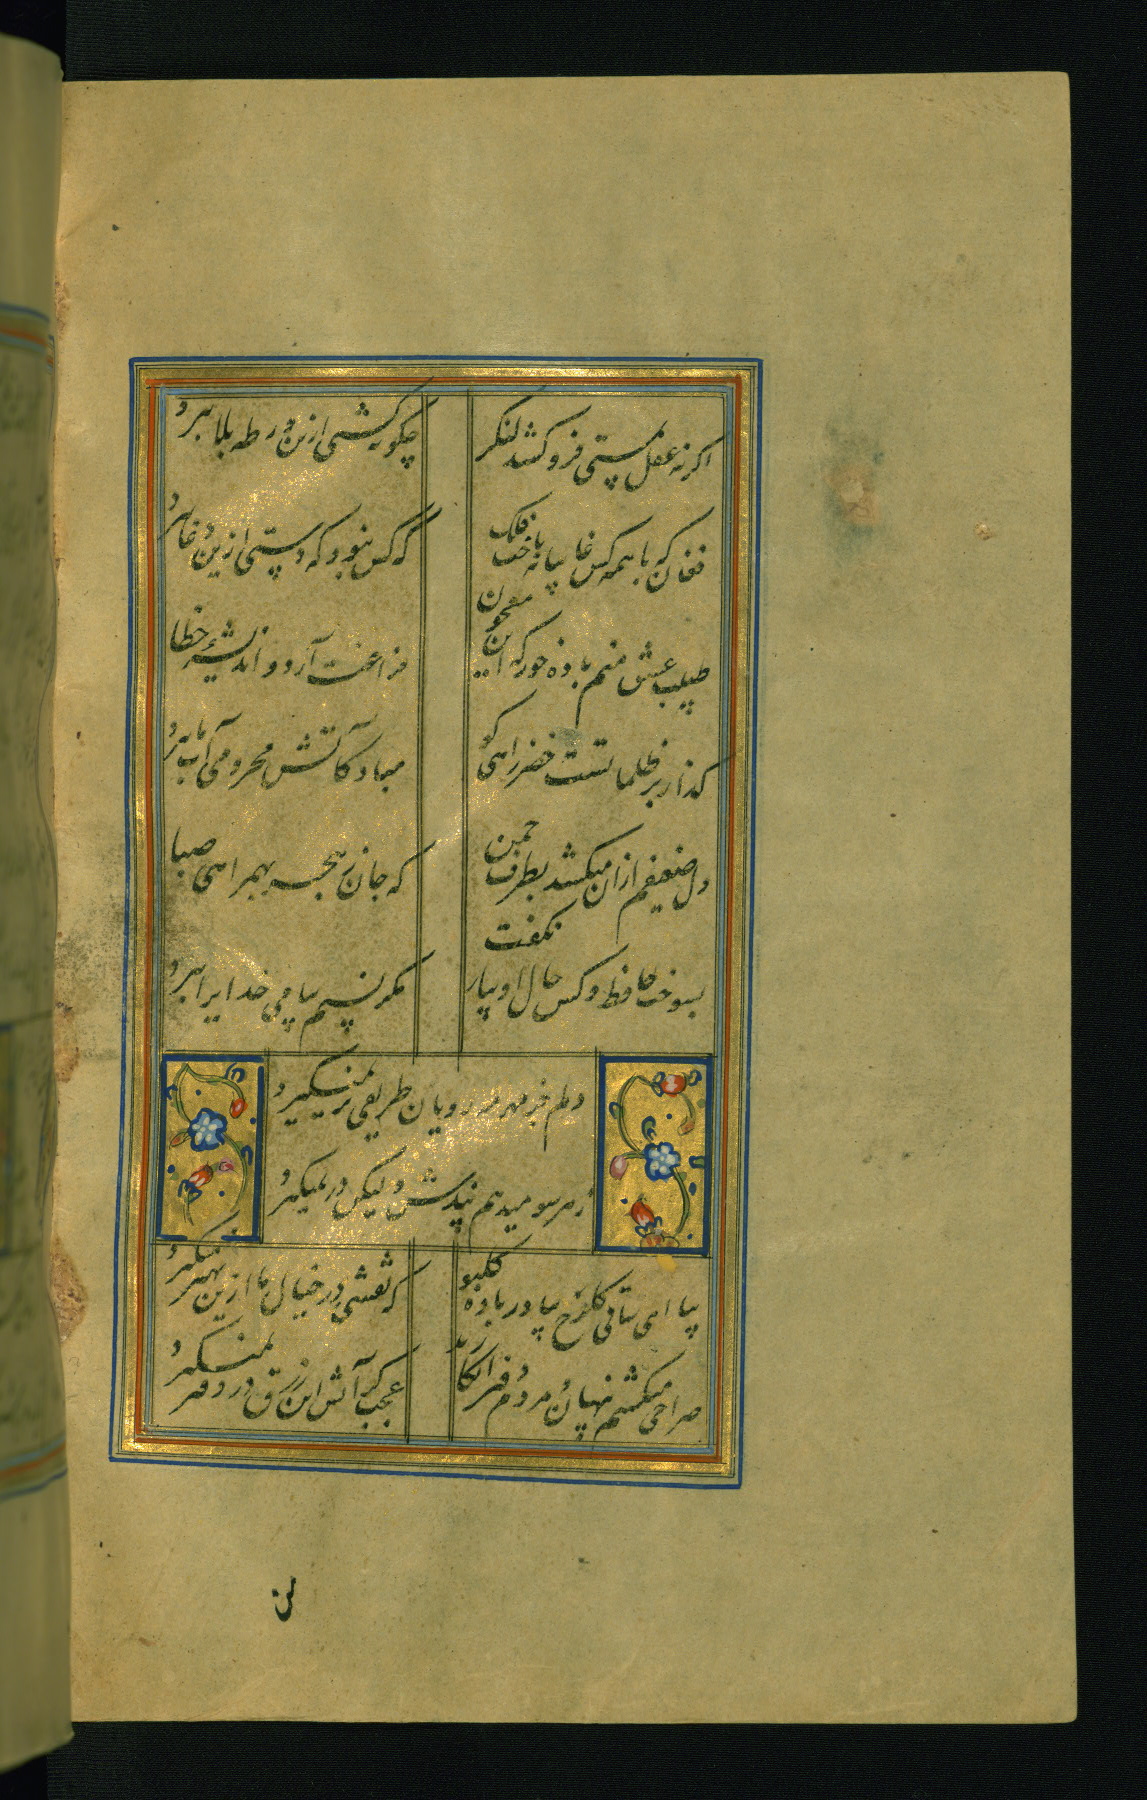 اکر نه عقل بمستی فرو کشد لنکر
چکونه کشتی ازین ورطه بلا ببرد
فغان که با همه کس غایبانه باخت فلک
که کس نبود که دستی ازین دغا ببرد
طبیب عشق منم باده خور که این معجون
فراغت آرد و اندیشهٔ خطا
کذار بر ظلماتست خضر راهی کو
مباد کآتش محرومی آب ما ببرد
دل ضعیفم ازان میکشد بطرف چمن
که جان بهمراهی صبا
بسوخت حافظ و کس حال او بیار نکفت
مکر نسیم پیامی خدایرا ببرد
دلم جز مهر مه رویان طریقی بر نمیکیرد
ز هر سو میدهم پندش ولیکن در نمیکیرد
بیا ای ساقی کلرخ بیاور باده کلبو
که نقشی در خیال ما ازین بهتر نمیکیرد
صراحی میکشم پنهان و مردم دفتر انکارند
عجب کر آتش این زرق در دفتر نمیکیرد